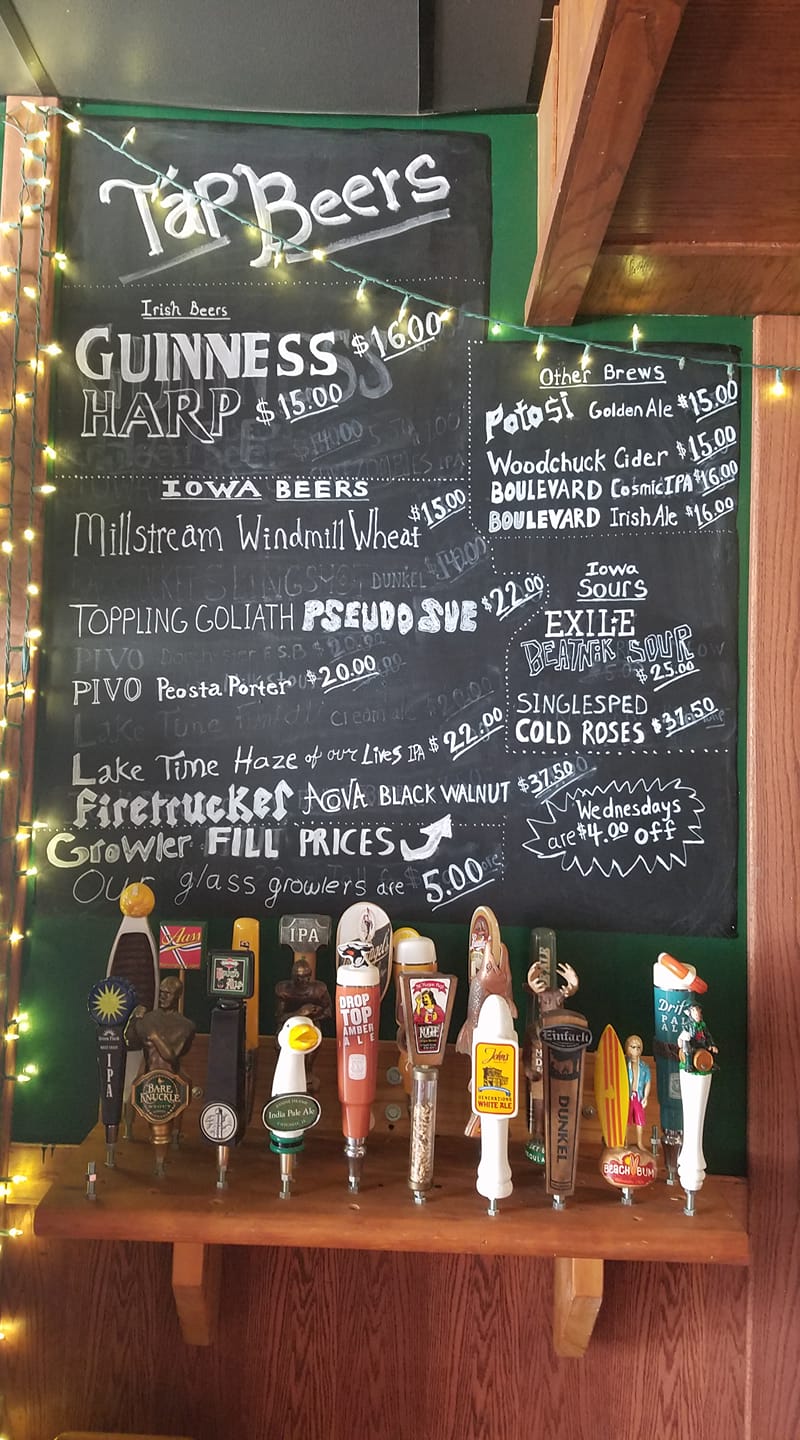 Tap Beers
Irish Beers
GUINNESS $16.00
HARP $15.00
IOWA BEERS
Millstream Windmill Wheat $15.00
DUNKEL
TOPPLING GOLIATH PSEUDO SUE $22.00
PIVO Peosta Porter $20.00
Lake Time Haze of our Lives IPA $22.00
Firetrucker NOVA BLACK WALNUT $37.50
Growler FILL PRICES
Our glass growlers are 5.00
Other Brews
Potosi Golden Ale $15.00
Woodchuck Cider $15.00
BOULEVARD Cosmic IPA $16.00
BOULEVARD Irish Ale $16.00
Iowa
Sours
EXILE
BEATNIK SOUR
$25.00
SINGLESPED
COLD ROSES $37.50
Wednesdays
are $4.00 off
Aass
IPA
IPA
BARE
KNUCKLE
STOUT
India Pale Ale
DROP
TOP
AMBER
ALE
ROGUE
John's
GENERATIONS
WHITE ALE
Einfach
DUNKEL
BEACH BUM
Drift
PALE
ALE